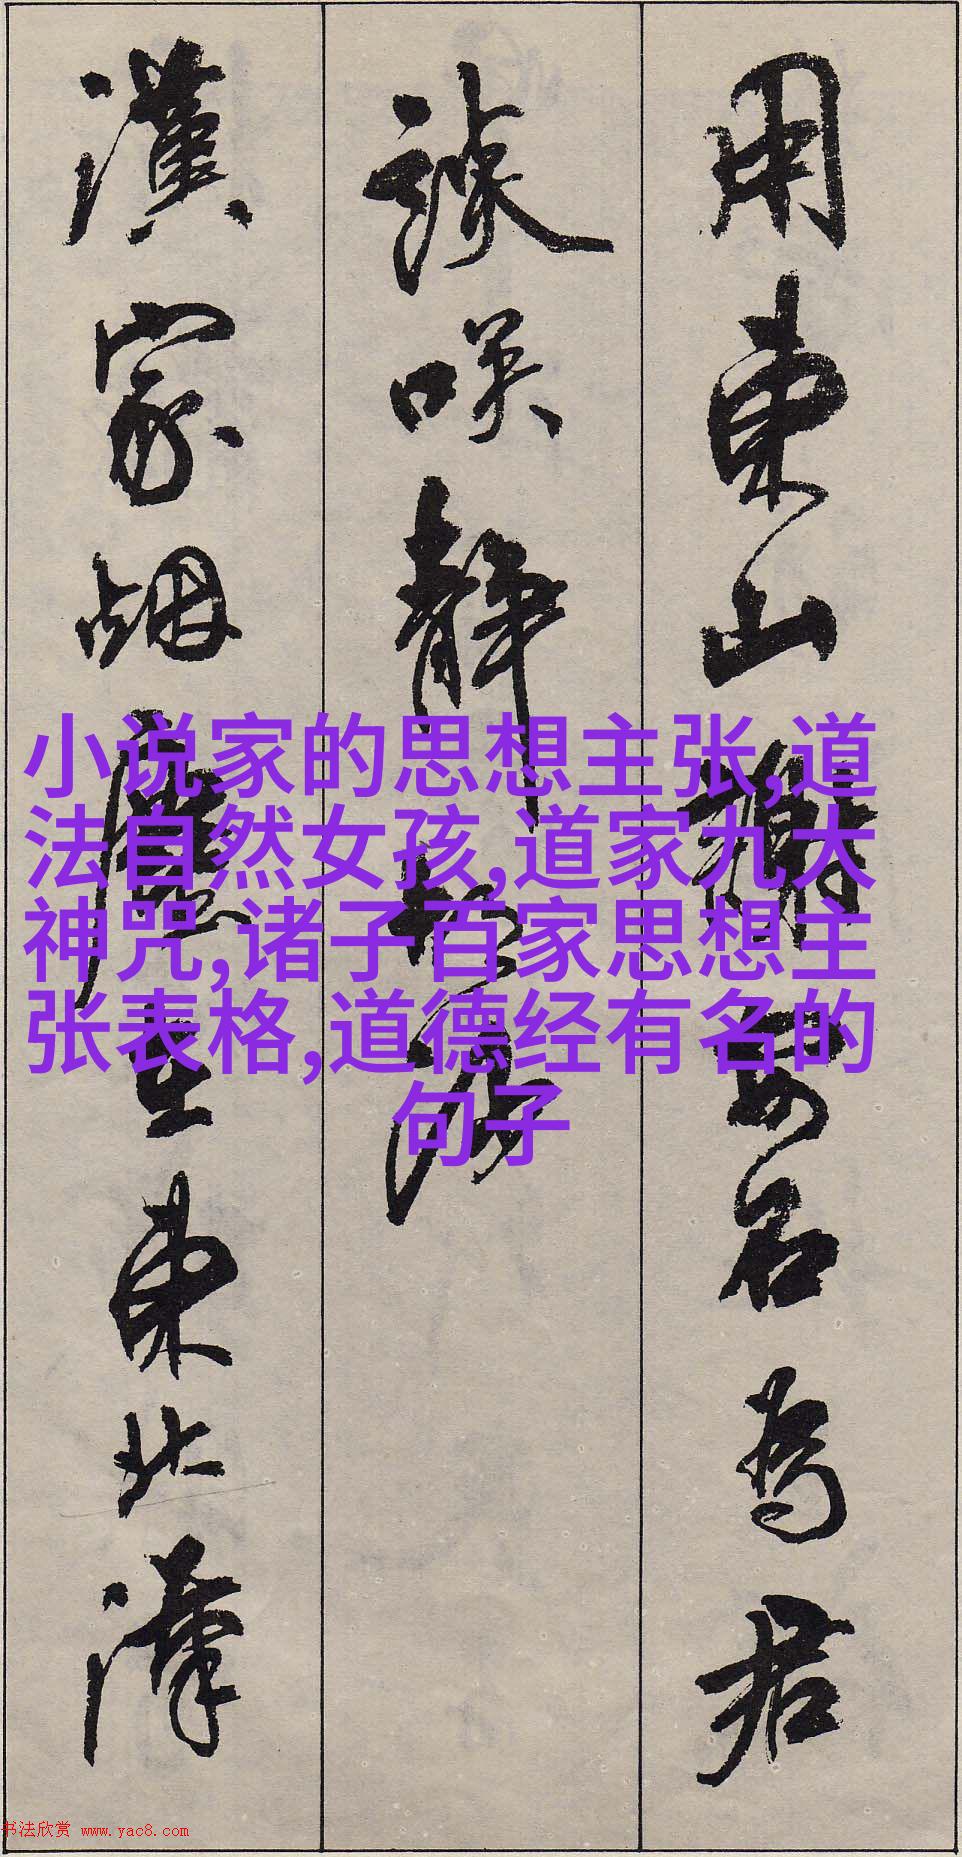 用东山謝安石为君
談咲静胡沙
漢家烟塵在東北漢
小说家的思想主张,道
法自然女孩,道家九大
神咒,诸子百家思想主
张表格,道德经有名的
句子
书法欣赏 www.yac8.com